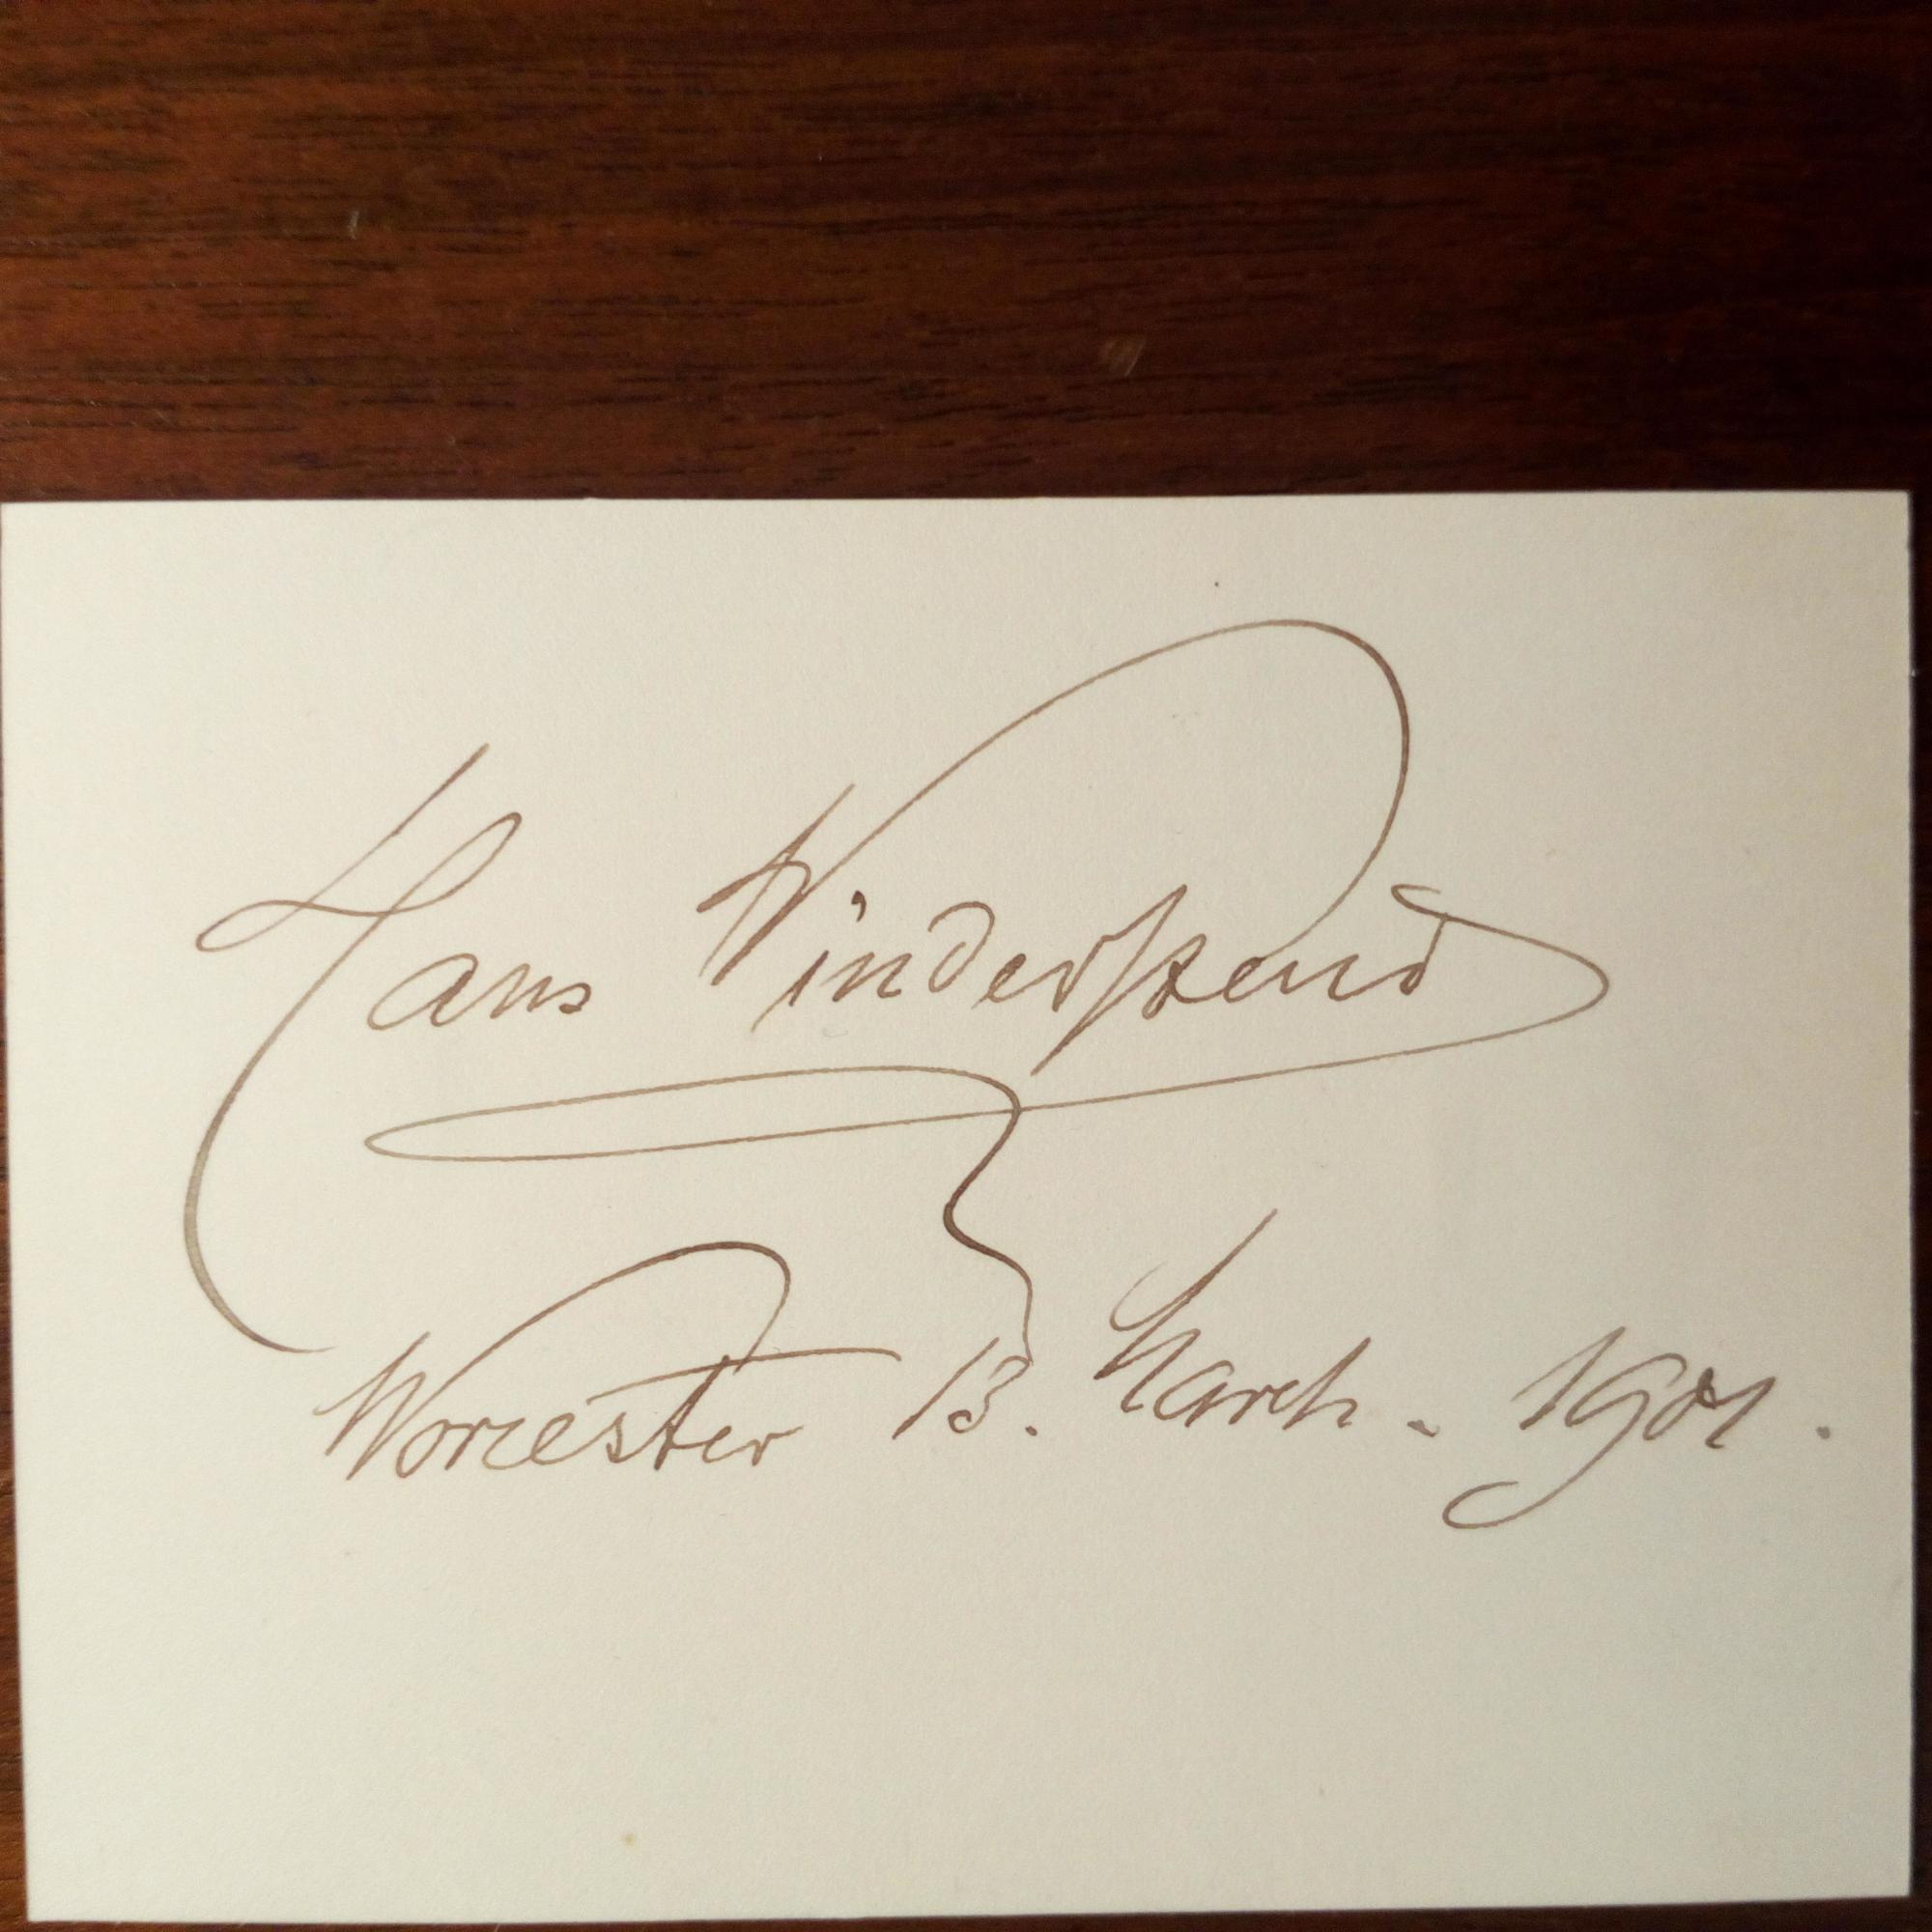 Hans Winderstein
Worcester 13. March - 1901.